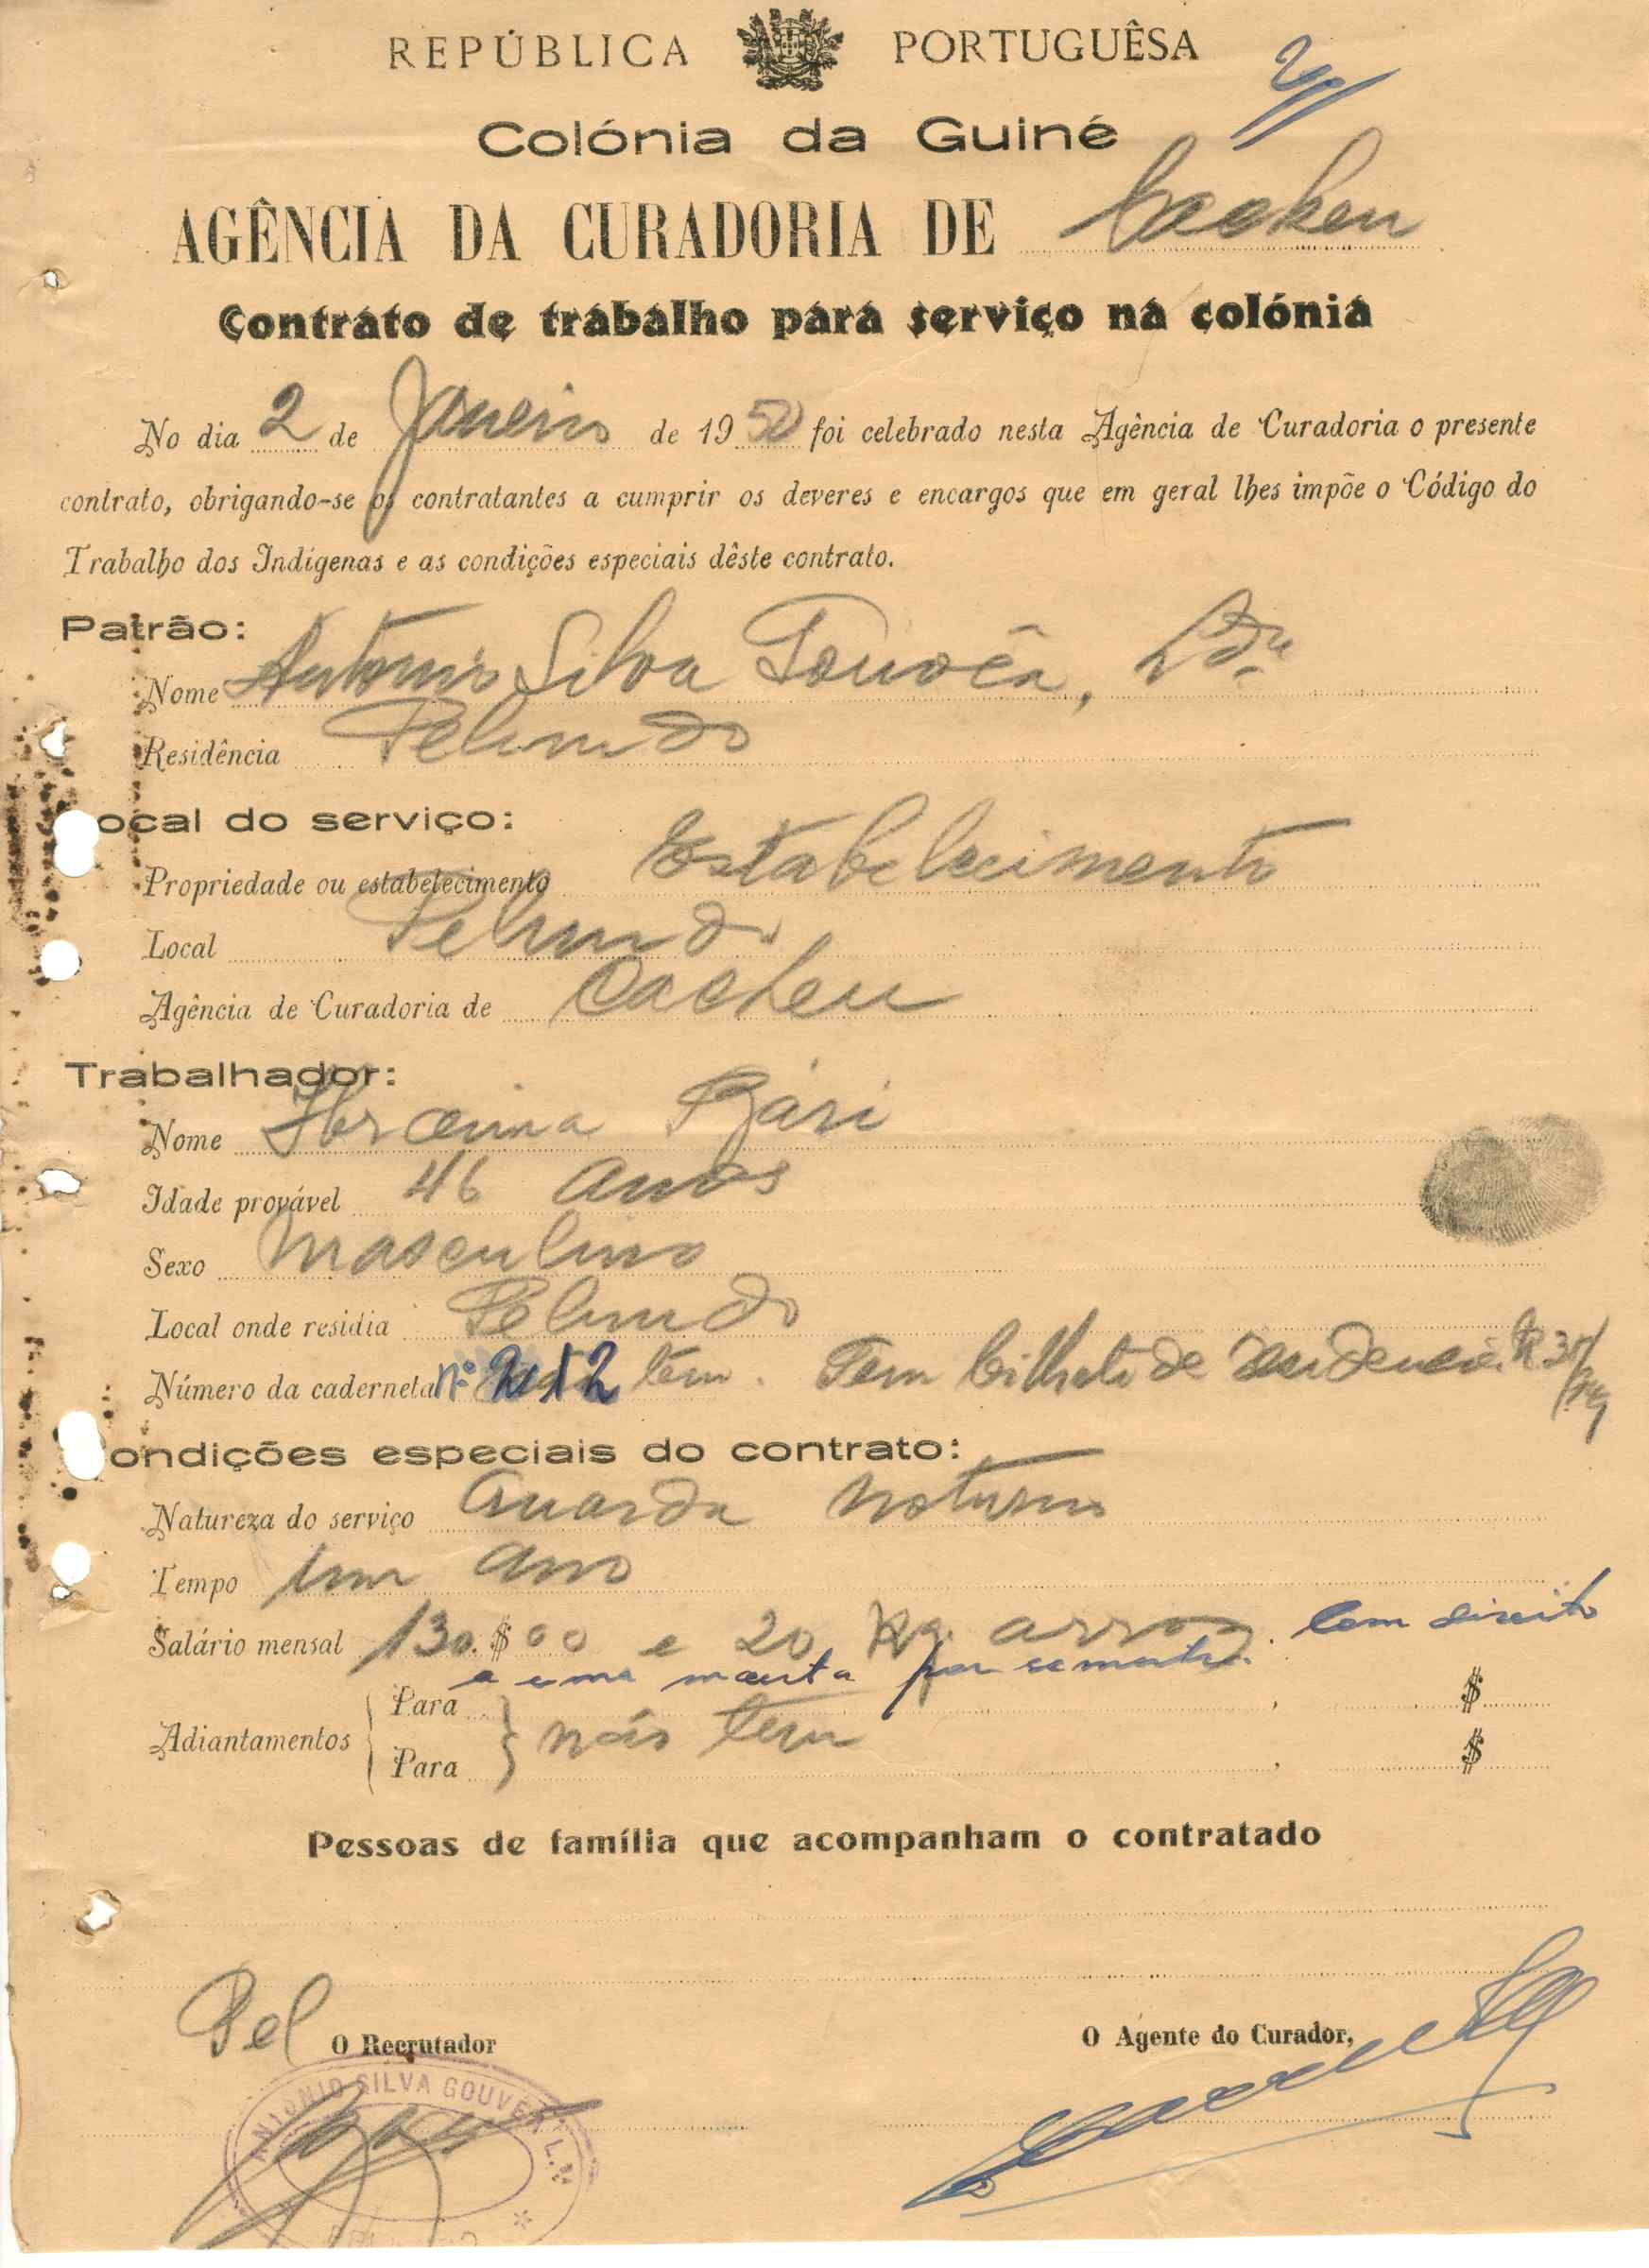 REPÚBLICA PORTUGUÊSA
Colónia da Guiné
AGÊNCIA DA CURADORIA DE Cacheu
Contrato de trabalho para serviço na colónia
No dia 2 de Janeiro de 1950 foi celebrado nesta Agência de Curadoria o presente
contrato, obrigando-se os contratantes a cumprir os deveres e encargos que em geral lhes impõe o Código do
Trabalho dos Indígenas e as condições especiais dêste contrato.
Patrão:
Nome António Silva Gouvêa, Lda
Residência Pelundo
ocal do serviço:
Propriedade ou estabelecimento Estabelecimento
Local Pelundo
Agência de Curadoria de Cacheu
Trabalhador:
Nome Ibraima Bári
Idade provável 46 anos
Sexo Masculino
Local onde residia Pelundo
Número da caderneta nº 212 tem. Tem bilhete de residencia
ondições especiais do contrato:
Natureza do serviço Guarda noturno
Tempo um ano
Salário mensal 130.$00 e 20 kg. arroz. Com direito
a uma manta por semestre.
Adiantamentos
Para $
não tem
Para $
Pessoas de família que acompanham o contratado
Pel
O Recrutador
O Agente do Curador,
ANTÓNIO SILVA GOUVEA L.DA